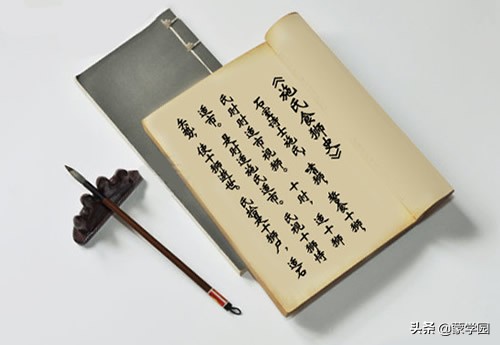 《施氏食狮史》
石室诗士施氏,嗜狮,誓食十狮,
氏时时适市视狮。十时,适十狮
适市。是时适施氏适市。氏视十狮恃
矢势,使十狮逝世。氏拾是十狮尸,适石
头条 @蒙学园